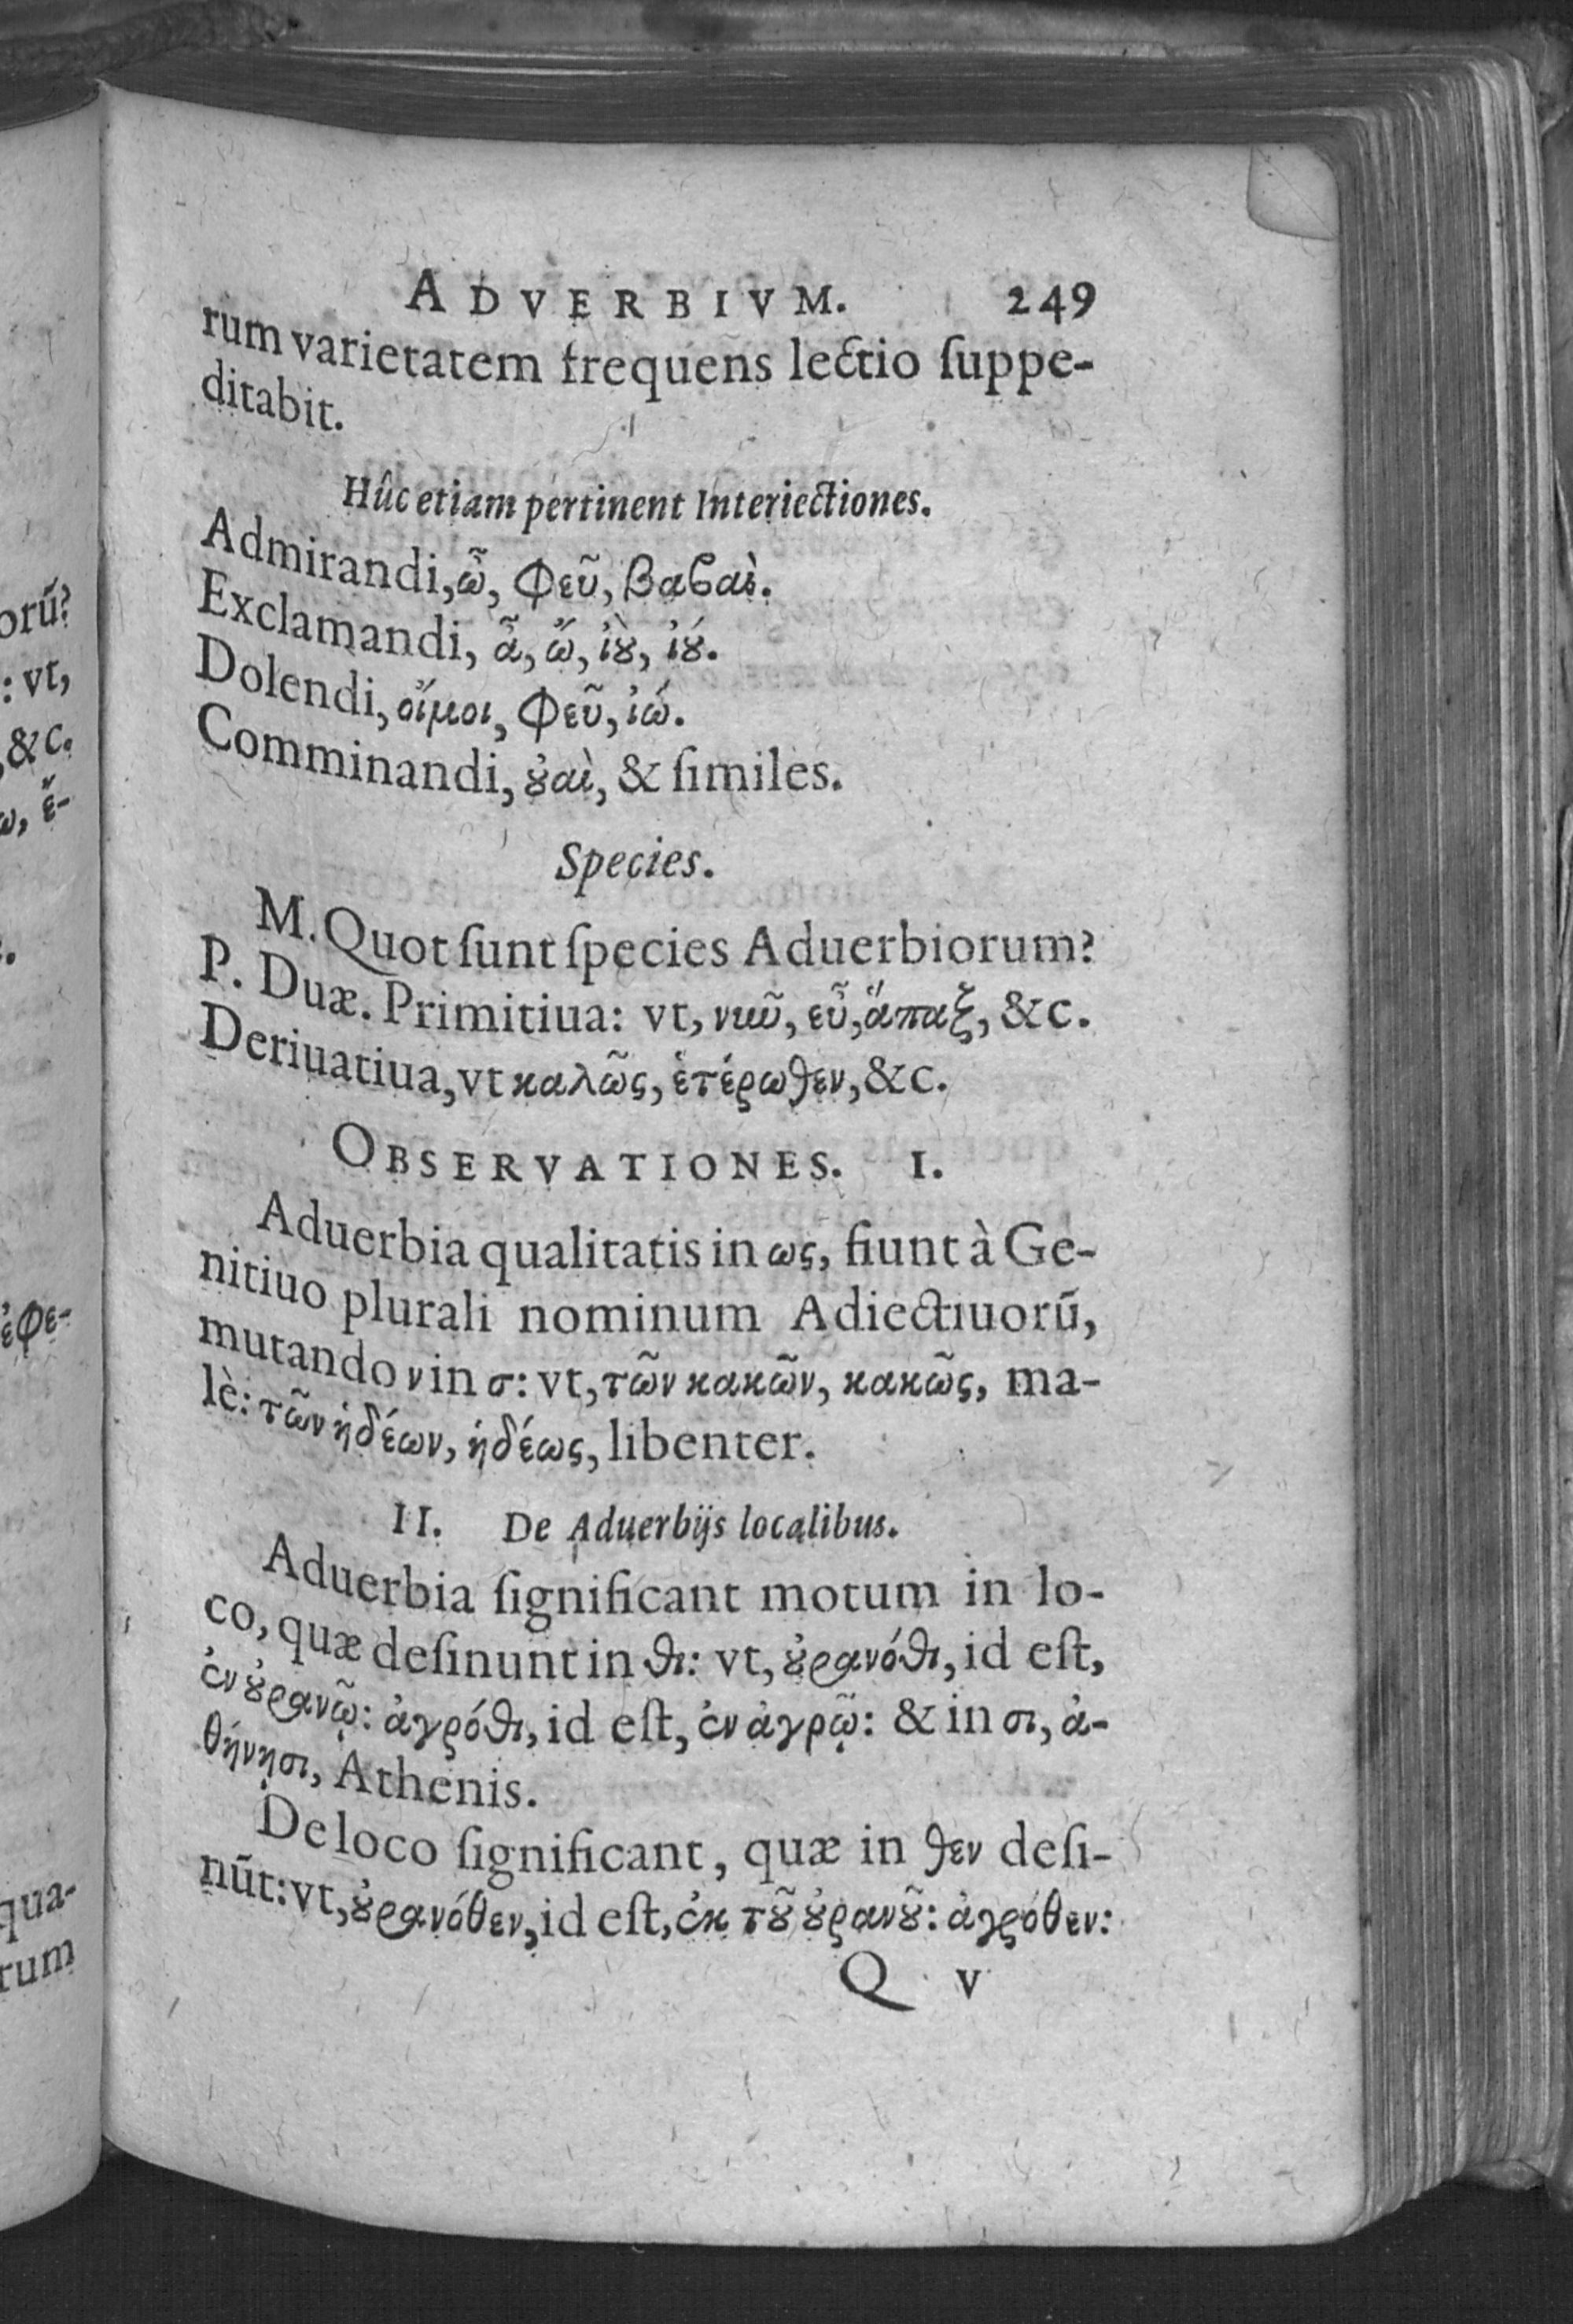 orũ?
: vt,
, &c.
ω, ἔ-
ἐφε-
qua-
rum
ADVERBIVM. 249
rum varietatem frequens lectio ſuppe-
ditabit.
Hûc etiam pertinent Interiectiones.
Admirandi, ὦ, φεῦ, βαβαὶ.
Exclamandi, ἆ, ὤ, ἰȣ̀, ἰȣ́.
Dolendi, οἴμοι, φεῦ, ἰώ.
Comminandi, ȣ̓αὶ, & ſimiles.
Species.
M. Quot ſunt ſpecies Aduerbiorum?
P. Duæ. Primitiua: vt, νιῦ, εὖ, ἅπαξ, &c.
Deriuatiua, vt καλῶς, ἑτέρωθεν, &c.
OBSERVATIONES. I.
Aduerbia qualitatis in ως, fiunt à Ge-
nitiuo plurali nominum Adiectiuorũ,
mutando ν in σ: vt, τῶν κακῶν, κακῶς, ma-
lè: τῶν ἡδέων, ἡδέως, libenter.
II. De Aduerbijs localibus.
Aduerbia ſignificant motum in lo-
co, quæ deſinunt in θι: vt, ȣ̓ρανόθι, id eſt,
ἐν ȣ̓ρανῷ: ἀγρόθι, id eſt, ἐν ἀγρῷ: & in σι, ἀ-
θήνησι, Athenis.
De loco ſignificant, quæ in θεν deſi-
nũt: vt, ȣ̓ρανόθεν, id eſt, ἐκ τȣ͂ ȣ̓ρανȣ͂: ἀγρόθεν:
Q v